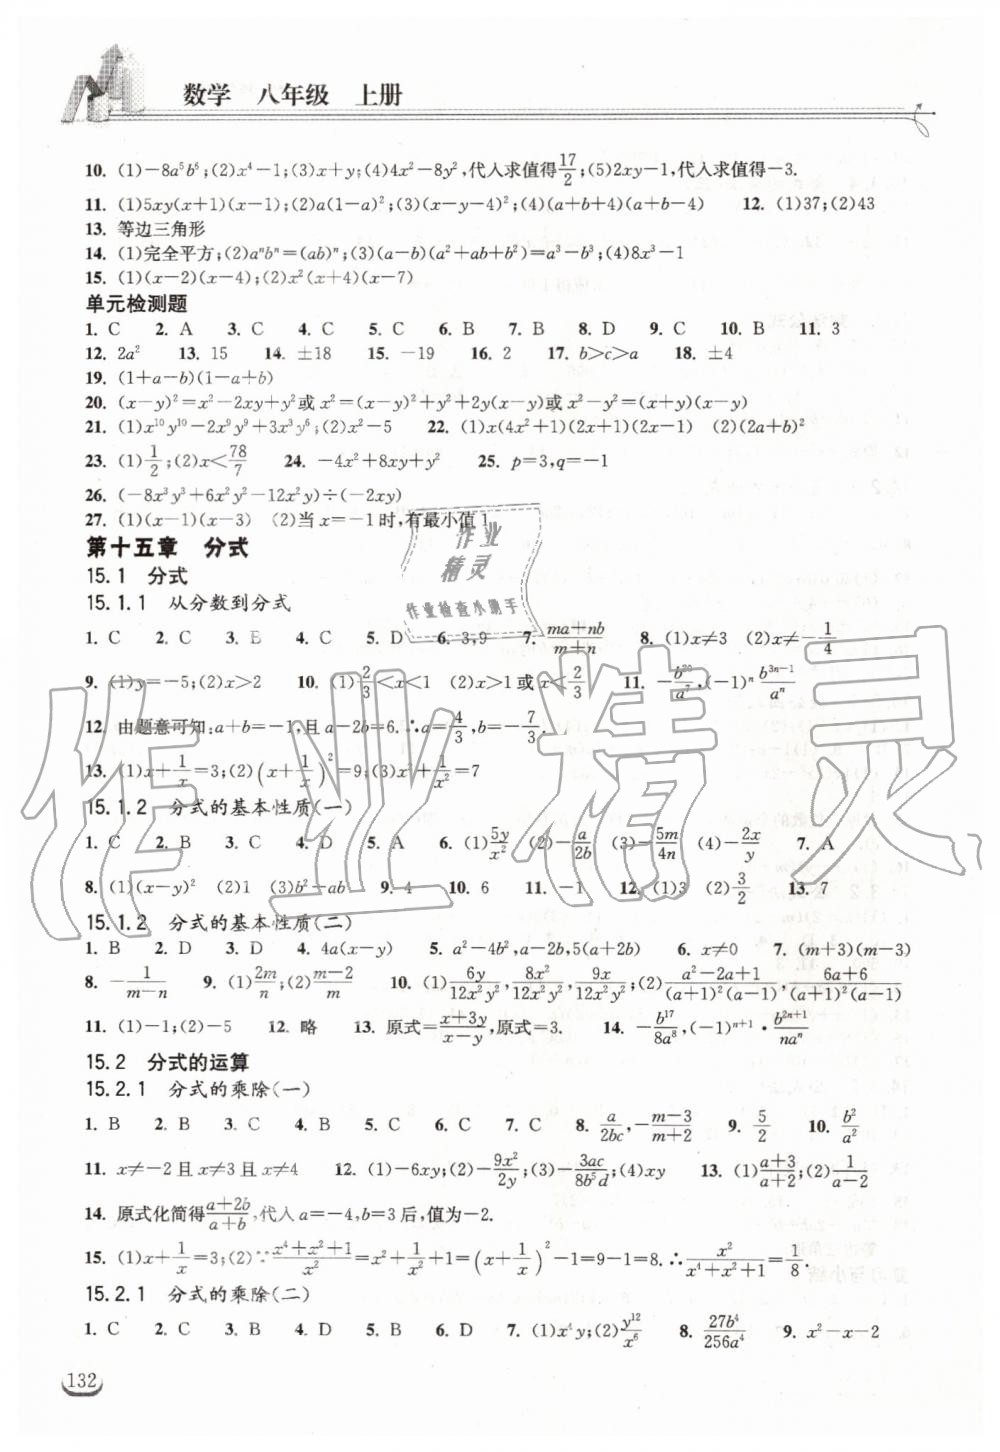 数学 八年级 上册
10. (1)-8a⁵b⁶;(2)x⁴-1;(3)x+y;(4)4x²-8y²,代入求值得17/2;(5)2xy-1,代入求值得-3.
11. (1)5xy(x+1)(x-1);(2)a(1-a)²;(3)(x-y-4)²;(4)(a+b+4)(a+b-4) 12. (1)37;(2)43
13. 等边三角形
14. (1)完全平方;(2)aⁿbⁿ=(ab)ⁿ;(3)(a-b)(a²+ab+b²)=a³-b³;(4)8x³-1
15. (1)(x-2)(x-4);(2)x²(x+4)(x-7)
单元检测题
1. C 2. A 3. C 4. C 5. C 6. B 7. B 8. D 9. C 10. B 11. 3
12. 2a² 13. 15 14. ±18 15. -19 16. 2 17. b>c>a 18. ±4
19. (1+a-b)(1-a+b)
20. (x-y)²=x²-2xy+y²或x²=(x-y)²+y²+2y(x-y)或x²-y²=(x+y)(x-y)
21. (1)x¹⁰y¹⁰-2x⁹y⁹+3x³y⁶;(2)x²-5 22. (1)x(4x²+1)(2x+1)(2x-1) (2)(2a+b)²
23. (1)1/2;(2)x<78/7 24. -4x²+8xy+y² 25. p=3,q=-1
26. (-8x³y³+6x²y²-12x²y)÷(-2xy)
27. (1)(x-1)(x-3) (2)当x=-1时,有最小值1
第十五章 分式
15.1 分式
15.1.1 从分数到分式
1. C 2. C 3. B 4. C 5. D 6. 3,9 7. (ma+nb)/(m+n) 8. (1)x≠3 (2)x≠-1/4
9. (1)y=-5;(2)x>2 10. (1)2/3<x<1 (2)x>1或x<2/3 11. -b²⁰/a⁷,(-1)ⁿ b³ⁿ⁻¹/aⁿ
12. 由题意可知:a+b=-1,且a-2b=6.∴a=4/3,b=-7/3.
13. (1)x+1/x=3;(2)(x+1/x)²=9;(3)x²+1/x²=7
15.1.2 分式的基本性质(一)
1. C 2. B 3. C 4. D 5. A 6. (1)5y/x² (2)-a/2b (3)-5m/4n (4)-2x/y 7. A
8. (1)(x-y)² (2)1 (3)b²-ab 9. 4 10. 6 11. -1 12. (1)3 (2)3/2 13. 7
15.1.2 分式的基本性质(二)
1. B 2. D 3. D 4. 4a(x-y) 5. a²-4b²,a-2b,5(a+2b) 6. x≠0 7. (m+3)(m-3)
8. -1/(m-n) 9. (1)2m/n;(2)(m-2)/m 10. (1)6y/12x²y²,8x²/12x²y²,9x/12x²y²;(2)(a²-2a+1)/((a+1)²(a-1)),(6a+6)/((a+1)²(a-1))
11. (1)-1;(2)-5 12. 略 13. 原式=(x+3y)/(x-y),原式=3. 14. -b¹⁷/8a⁸,(-1)ⁿ⁺¹·b²ⁿ⁺¹/naⁿ
15.2 分式的运算
15.2.1 分式的乘除(一)
1. B 2. B 3. C 4. B 5. C 6. C 7. C 8. a/2bc,-(m-3)/(m+2) 9. 5/2 10. b²/a²
11. x≠-2且x≠3且x≠4 12. (1)-6xy;(2)-9x²/2y;(3)-3ac/8b⁵d;(4)xy 13. (1)(a+3)/(a+2);(2)1/(a-2)
14. 原式化简得(a+2b)/(a+b),代入a=-4,b=3后,值为-2.
15. (1)x+1/x=3;(2)∵(x⁴+x²+1)/x²=x²+1/x²+1=(x+1/x)²-1=9-1=8.∴x²/(x⁴+x²+1)=1/8.
15.2.1 分式的乘除(二)
1. C 2. C 3. B 4. D 5. B 6. D 7. (1)x⁴y;(2)y¹²/x⁶ 8. 27b⁴/256a⁴ 9. x²-x-2
132
作业
精灵
作业检查小助手
作业精灵